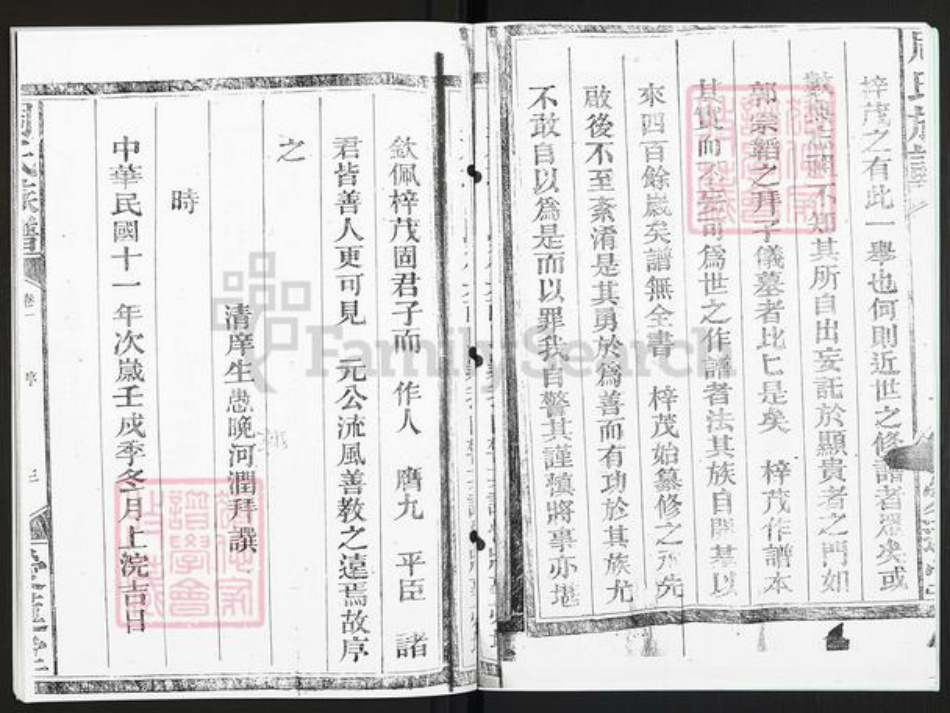 周氏族譜
梓茂之有此一舉也何則近世之修譜者衆矣或
數典忘祖不知其所自出妄託於顯貴者之門如
郭崇韜之拜子儀墓者比比是矣 梓茂作譜本
其實而不 可為世之作譜者法其族自開基以
來四百餘歲矣譜無全書 梓茂始纂修之承先
啟後不至紊淆是其勇於為善而有功於其族尤
不敢自以為是而以罪我自警其謹慎將事亦堪
欽佩梓茂固君子而 作人 膺九 平臣 諸
君皆善人更可見 元公流風善教之遠焉故序
之
時
清庠生愚晚河潤拜撰
中華民國十一年次歲壬戌季冬月上浣吉日
周氏族譜
卷一
序
三
FamilySearch